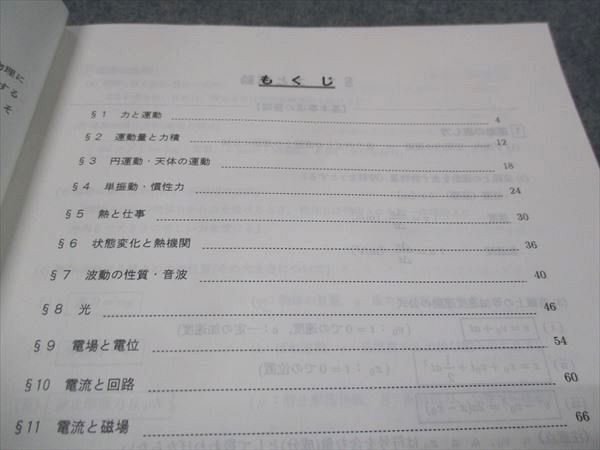 物理に
する
そ
もくじ
§1 力と運動 4
§2 運動量と力積 12
§3 円運動・天体の運動 18
§4 単振動・慣性力 24
§5 熱と仕事 30
§6 状態変化と熱機関 36
§7 波動の性質・音波 40
§8 光 46
§9 電場と電位 54
§10 電流と回路 60
§11 電流と磁場 66